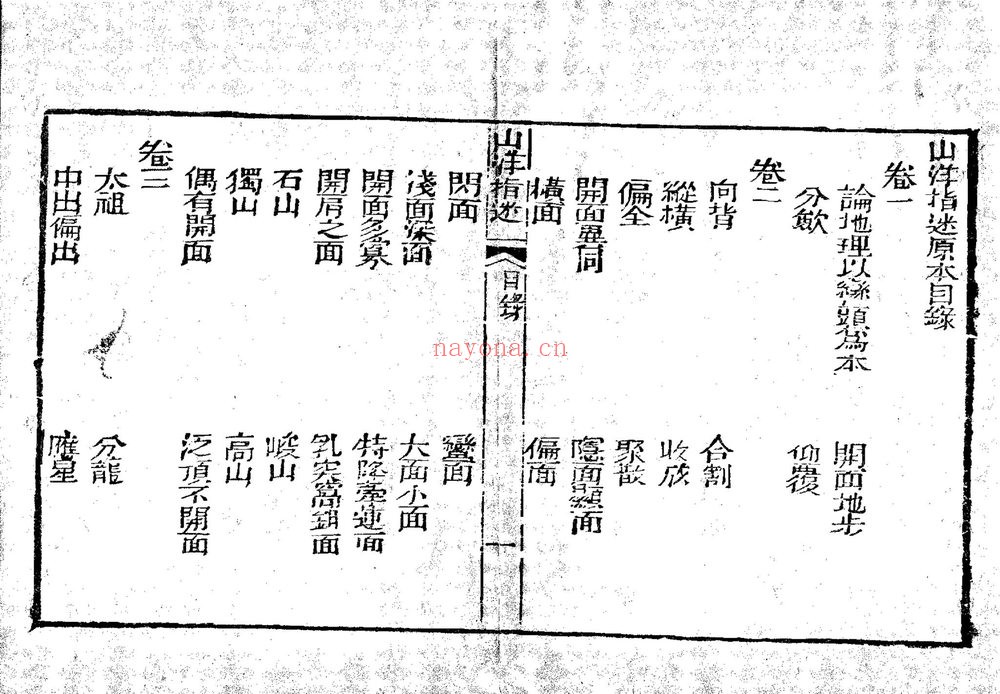 山洋指迷原本目錄
卷一
論地理以巒頭為本
開面地步
分斂
仰覆
卷二
向背
合割
縱橫
收放
偏全
聚散
開面異同
隱面顯面
橫面
偏面
山洋指迷
目錄
一
閃面
蠻面
淺面深面
大面小面
開面多寡
特降牽連面
開肩之面
乳突窩鉗面
石山
峻山
獨山
高山
偶有開面
泛頂不開面
卷三
太祖
分龍
中出偏出
應星
nayona.cn